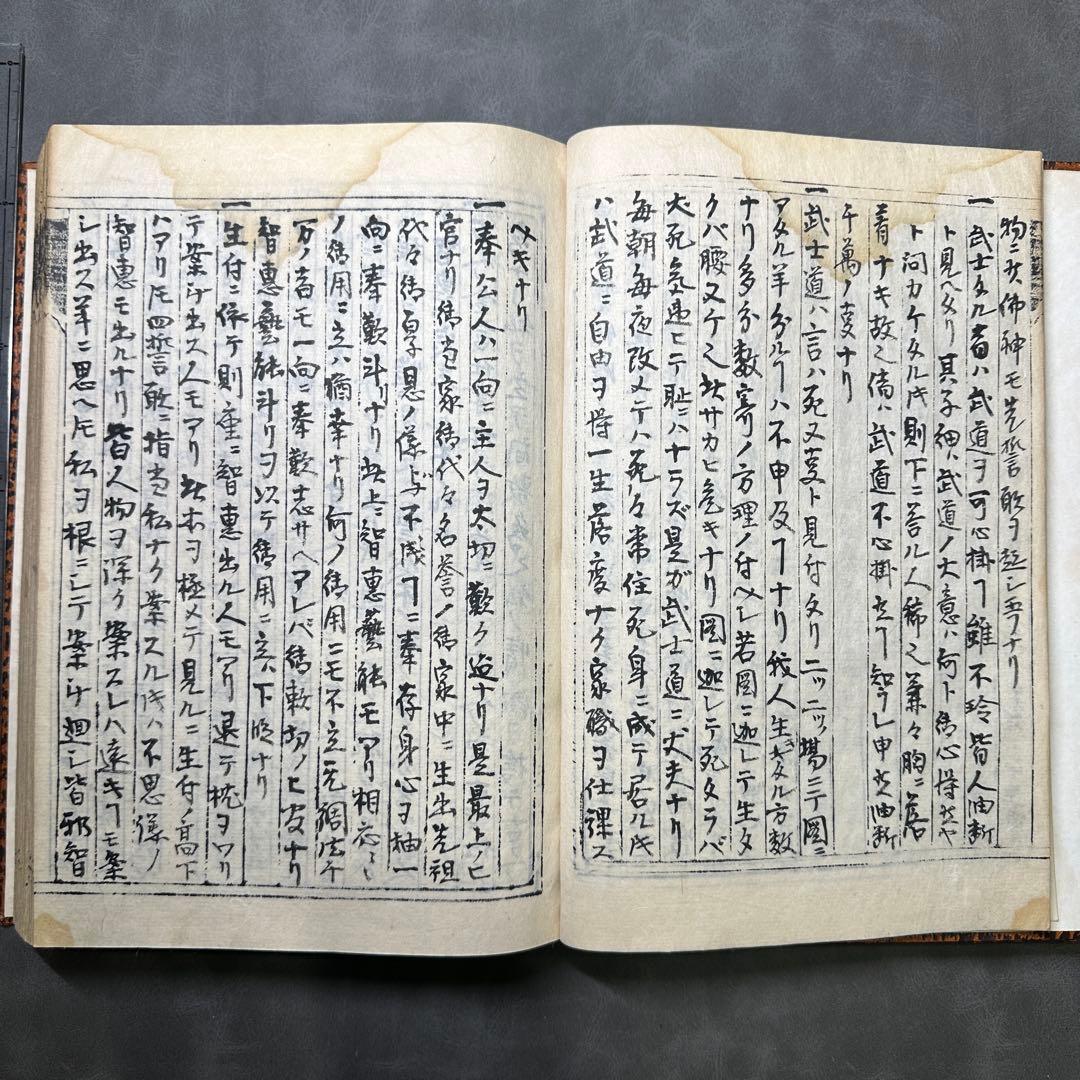 物ニ佛神モ先誓願ヲ起シ玉フナリ
一武士タル者ハ武道ヲ可心掛ヿ雖不珍皆人油断
ト見ヘタリ其子細ハ武道ノ大意ハ何ト御心得候や
ト問カケタル片則下ニ答ル人稀之兼々胸ニ落
着ナキ故之偖ハ武道不心掛ヿ知ラレ申候油断
千萬ノ支ナリ
一武士道ハ言ハ死ヌ支ト見付タリ二ツ二ツノ場ニテ圖ニ
アタル分ルハ不申及ヿナリ我人生キタル方数
ナリ多分数寄ノ方理ノ付ヘシ若圖ニ迦レテ生タ
クバ腰ヌケ之此サカヒ危キナリ圖ニ迦レテ死タラバ
犬死気違ヒテ恥ニハナラズ是ガ武士道ニ丈夫ナリ
毎朝毎夜改メテハ死々常住死身ニ成テ居ル片
ハ武道ニ自由ヲ得一生落度ナク家職ヲ仕課ス
ヘキナリ
一奉公人ハ一向ニ主人ヲ太切ニ歎ク迠ナリ是最上ノヒ
官ナリ御当家御代々名誉ノ御家中ニ生出先祖
代々御厚恩ノ儀ヲ不浅ヿニ奉存身心ヲ抽一
向ニ奉歎斗リナリ此上ニ智惠藝能モアリ相応々
ノ御用ニ立ハ猶幸ナリ何ノ御用ニモ不立无調法千
万ノ者モ一向ニ奉歎志サヘアレバ御頼切ノヒ官ナリ
智惠藝能斗リヲ以テ御用ニ立ハ下段ナリ
一生付ニ依テ則座ニ智惠出ル人モアリ退テ枕ヲワリ
テ案ジ出ス人モアリ此本ヲ極メテ見ルニ生付ノ高下
ハアリ𪜈四誓敢ニ指当私ナク案スル片ハ不思儀ノ
智惠モ出ルナリ皆人物ヲ深ク案スレハ遠キヿモ案
シ出ス羊ニ思ヘ𪜈私ヲ根ニシテ案ジ廻シ皆邪智